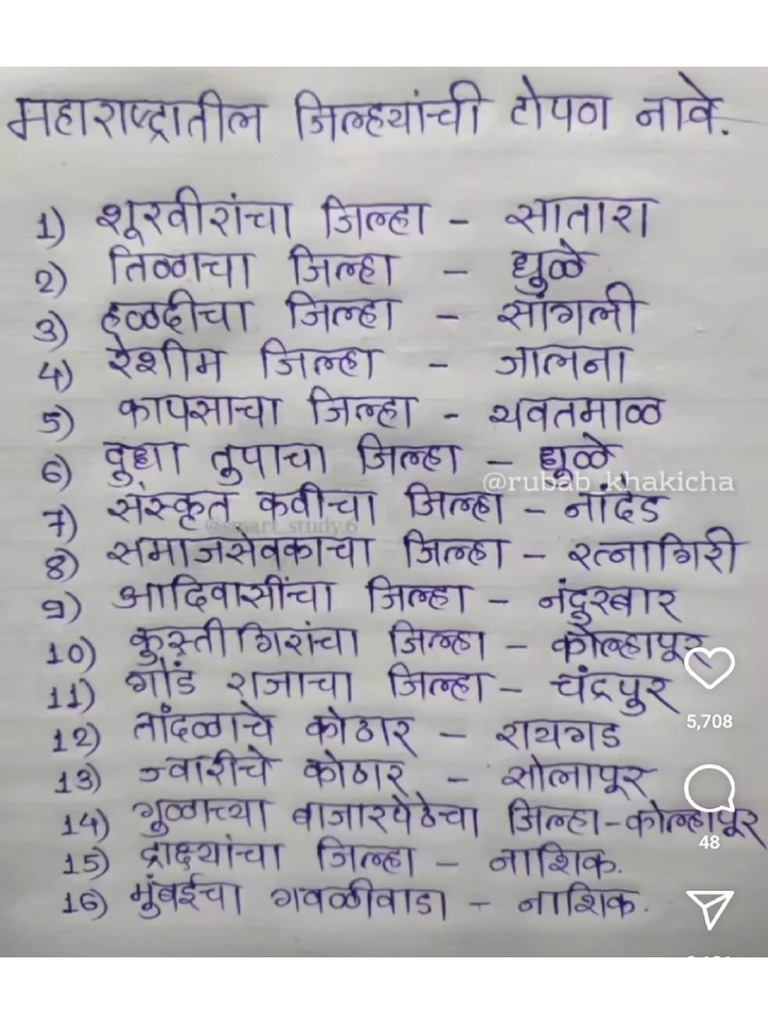 महाराष्ट्रातील जिल्हयांची टोपण नावे.
1) शूरवीरांचा जिल्हा - सातारा
2) तिळाचा जिल्हा - धुळे
3) हळदीचा जिल्हा - सांगली
4) रेशीम जिल्हा - जालना
5) कापसाचा जिल्हा - यवतमाळ
6) दुधा तुपाचा जिल्हा - धुळे
@rubab_khakicha
7) संस्कृत कवीचा जिल्हा - नांदेड
@smart_study.6
8) समाजसेवकाचा जिल्हा - रत्नागिरी
9) आदिवासींचा जिल्हा - नंदुरबार
10) कुस्तीगिरांचा जिल्हा - कोल्हापूर
11) गोंड राजाचा जिल्हा - चंद्रपुर
5,708
12) तांदळाचे कोठार - रायगड
13) ज्वारीचे कोठार - सोलापूर
14) गुळाच्या बाजारपेठेचा जिल्हा - कोल्हापूर
48
15) द्राक्ष्यांचा जिल्हा - नाशिक.
16) मुंबईचा गवळीवाडा - नाशिक.